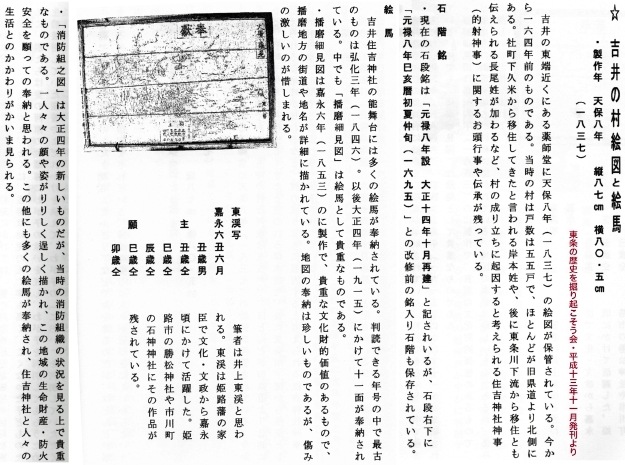 ☆ 吉井の村絵図と絵馬
・製作年 天保八年 縦八七㎝ 横八〇・五㎝
(一八三七)
東条の歴史を掘り起こそう会・平成十三年十一月発刊より
吉井の東端近くにある薬師堂に天保八年(一八三七)の絵図が保管されている。今か
ら一六四年前のものである。当時の村は戸数は五五戸で、ほとんどが旧県道より北側に
ある。社町下久米から移住してきたと言われる岸本姓や、後に東条川下流から移住とも
伝えられる長尾姓が加わるなど、村の成り立ちに起因すると考えられる住吉神社神事
(的射神事)に関するお頭行事や伝承が残っている。
石階銘
・現在の石段銘は「元禄八年設 大正十四年十月再建」と記されいるが、石段右下に
「元禄八年乙亥暦初夏仲旬(一六九五)」との改修前の銘入り石階も保存されている。
絵馬
吉井住吉神社の能舞台には多くの絵馬が奉納されている。判読できる年号の中で最古
のものは弘化三年(一八四六)。以後大正四年(一九一五)にかけて十一面が奉納され
ている。中でも「播磨細見図」は絵馬として貴重なものである。
・播磨細見図は嘉永六年(一八五三)のに製作で、貴重な文化財的価値のあるもので、
播磨地方の街道や地名が詳細に描かれている。地図の奉納は珍しいものであるが、傷み
の激しいのが惜しまれる。
奉献
東渓写
嘉永六丑六月
丑歳男
主 丑歳仝
巳歳仝
辰歳仝
願 巳歳仝
卯歳仝
筆者は井上東渓と思わ
れる。東渓は姫路藩の家
臣で文化・文政から嘉永
頃にかけて活躍した。姫
路市の勝松神社や市川町
の石神神社にその作品が
残されている。
・「消防組之図」は大正四年の新しいものだが、当時の消防組織の状況を見る上で貴重
なものである。一人々々の顔や姿がりりしく逞しく描かれ、この地域の生命財産・防火
安全を願っての奉納と思われる。この他にも多くの絵馬が奉納され、住吉神社と人々の
生活とのかかわりがかいま見られる。